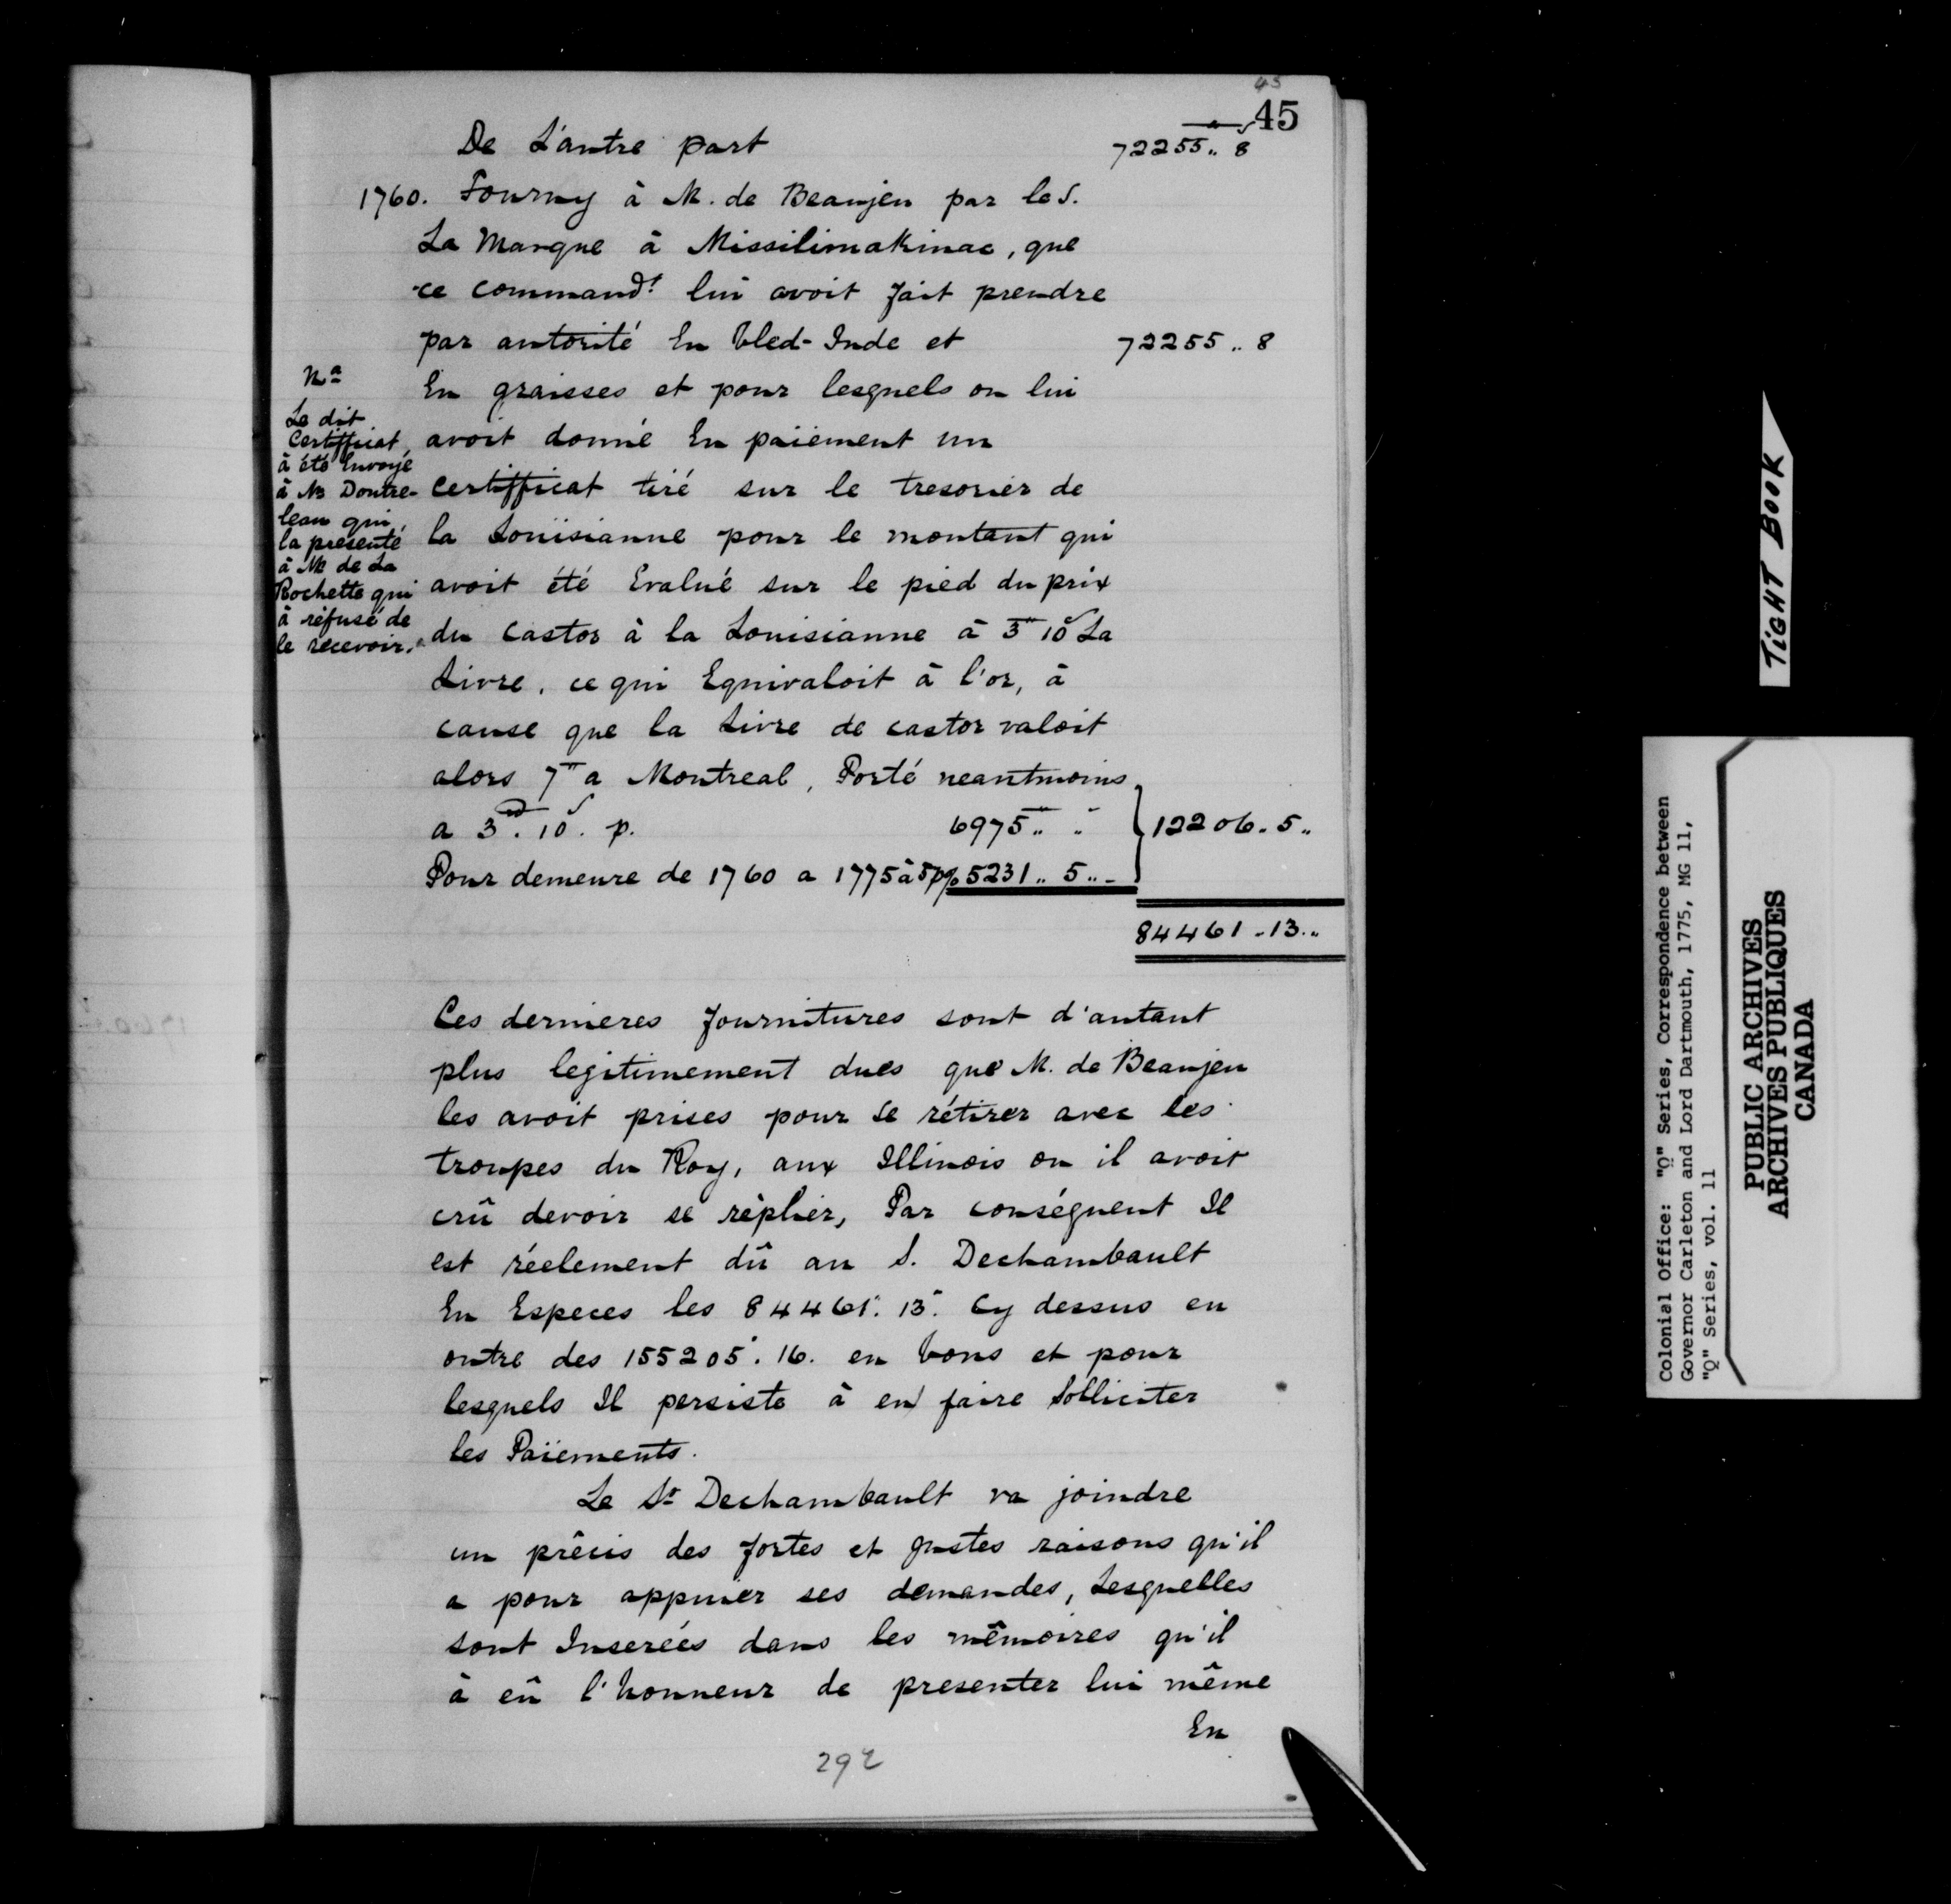 45
45
De L'autre part 72255.. 8
1760. Fourny à M. de Beaujeu par le S.
La Marque à Missilimakinac, que
ce commandt lui avoit fait prendre
par autorité En bled-Inde et 72255.. 8
En graisses et pour lesquels on lui
avoit donné En paiement un
Certifficat tiré sur le tresorier de
la Louisianne pour le montant qui
avoit été Evalué sur le pied du prix
du Castor à la Louisianne à 3tt 10s La
Livre, ce qui Equivaloit à l'or, à
cause que la Livre de castor valoit
alors 7tt a Montreal, Porté neantmoins
a 3tt. 10s. p. 6975.. .. } 12206. 5..
Pour demeure de 1760 a 1775 à 5 p% 5231.. 5.. -
84461.13..
Na
Le dit
Certifficat
à été Envoyé
à M Doutre-
leau qui
la présenté
à M de La
Rochette qui
à réfusé de
le recevoir.
Ces dernieres fournitures sont d'autant
plus legitimement dues que M. de Beaujeu
les avoit prises pour se rétirer avec les
troupes du Roy, aux Illinois ou il avoit
crû devoir se réplier, Par conséquent Il
est réelement dû au S. Dechambault
En Especes les 84461. 13. Cy dessus en
outre des 155205. 16. en bons et pour
lesquels Il persiste à en faire Solliciter
les Paiements.
Le Sr Dechambault va joindre
un précis des fortes et justes raisons qu'il
a pour appuier ses demandes, Lesquelles
sont Inserées dans les mêmoires qu'il
à eû l'honneur de presenter lui même
En
292
TIGHT BOOK
Colonial Office: "Q" Series, Correspondence between
Governor Carleton and Lord Dartmouth, 1775, MG 11,
"Q" Series, vol. 11
PUBLIC ARCHIVES
ARCHIVES PUBLIQUES
CANADA